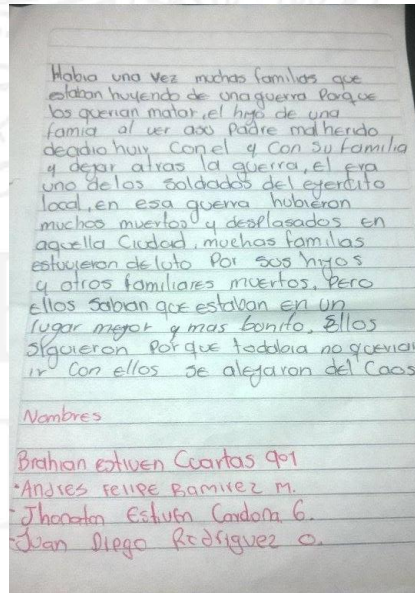 Habia una vez muchas familias que
estaban huyendo de una guerra Porque
los querian matar, el hijo de una
famia al ver aso Padre mal herido
decidio huir Con el y Con Su familia
y dejar atras la guerra, el era
uno de los Soldados del ejercito
local, en esa guerra hubieron
muchos muertos y desplasados en
aquella Ciudad, muchas familas
estuvieron de luto Por sus hijos
y otros familiares muertos, Pero
Ellos Sabian que estaban en un
lugar mejor y mas bonito, Ellos
Siguieron Porque todabia no querian
ir Con ellos se alejaron del Caos
Nombres
Brahian estiven Cuartas 901
•Andres Felipe Ramirez M.
-Jhonatan Estiven Cardona G.
-Juan Diego Rodriguez O.